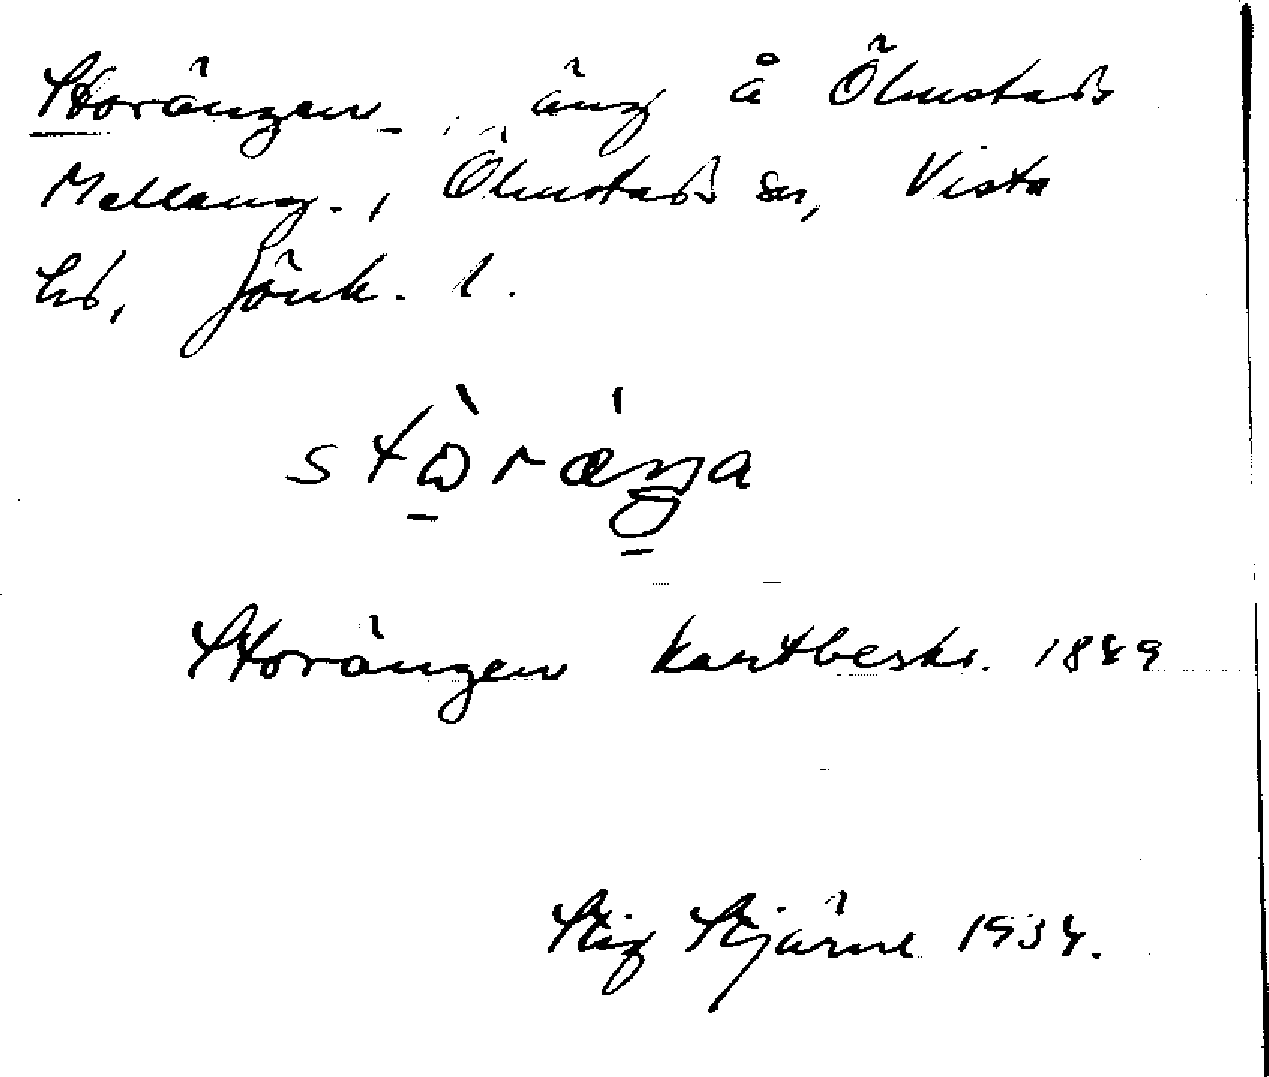 Storängen äng å Ölmstads
Mellang., Ölmstads sn, Vista
hd, Jönk. l.
Storängen kartbeskr. 1849
Stig Stjärne 1934.